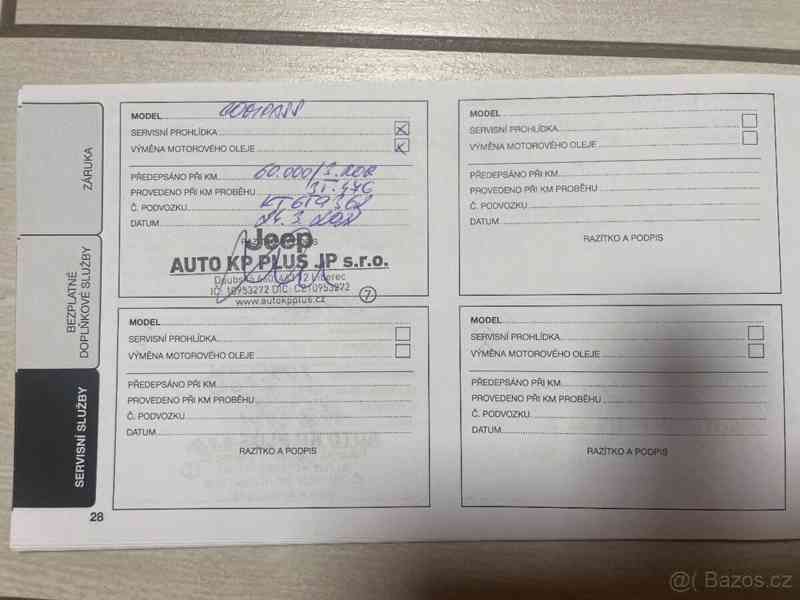 ZÁRUKA
BEZPLATNÉ
DOPLŇKOVÉ SLUŽBY
SERVISNÍ SLUŽBY
MODEL
SERVISNÍ PROHLÍDKA
VÝMĚNA MOTOROVÉHO OLEJE
PŘEDEPSÁNO PŘI KM 60.000/3.ROK
PROVEDENO PŘI KM PROBĚHU
Č. PODVOZKU
DATUM 24.3.
RAZÍTKO A PODPIS
Jeep
AUTO KP PLUS JP s.r.o.
Liberec
IČ: 10953272 DIČ: CZ10953272
www.autokpplus.cz 7
MODEL
SERVISNÍ PROHLÍDKA
VÝMĚNA MOTOROVÉHO OLEJE
PŘEDEPSÁNO PŘI KM
PROVEDENO PŘI KM PROBĚHU
Č. PODVOZKU
DATUM
RAZÍTKO A PODPIS
MODEL
SERVISNÍ PROHLÍDKA
VÝMĚNA MOTOROVÉHO OLEJE
PŘEDEPSÁNO PŘI KM
PROVEDENO PŘI KM PROBĚHU
Č. PODVOZKU
DATUM
RAZÍTKO A PODPIS
MODEL
SERVISNÍ PROHLÍDKA
VÝMĚNA MOTOROVÉHO OLEJE
PŘEDEPSÁNO PŘI KM
PROVEDENO PŘI KM PROBĚHU
Č. PODVOZKU
DATUM
RAZÍTKO A PODPIS
28
@( Bazos.cz